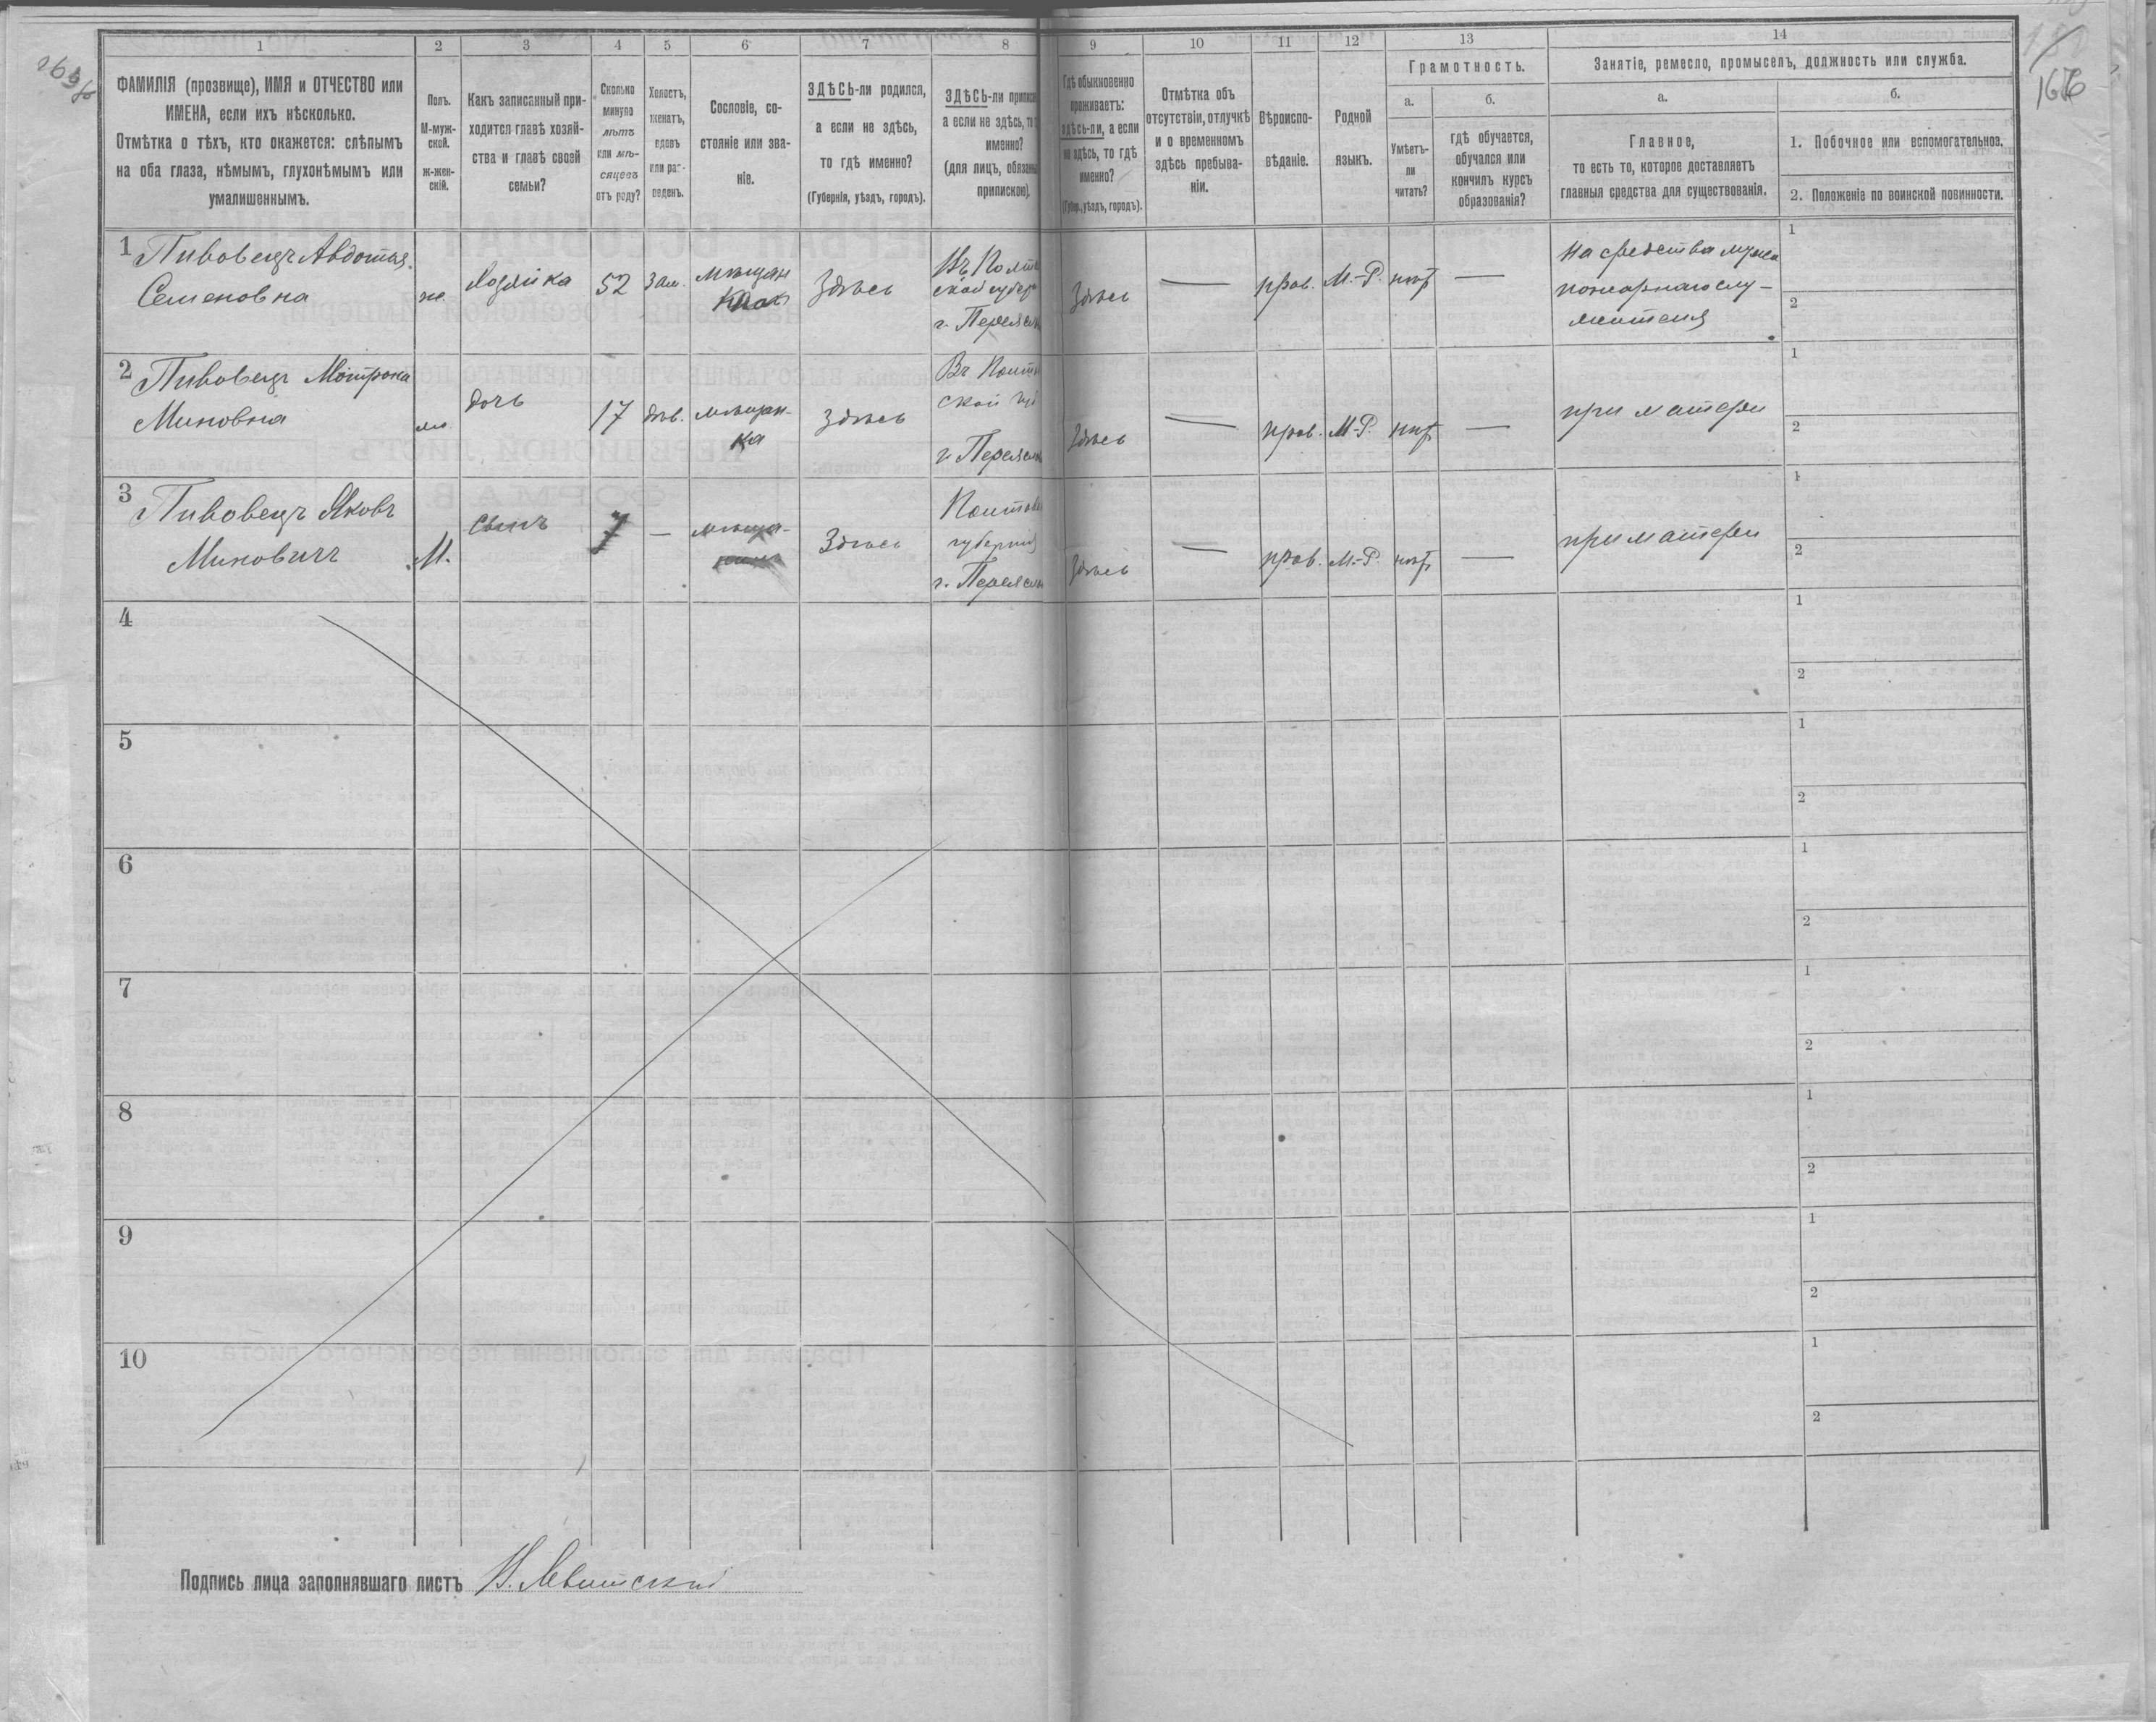 1 2 3 4 5 6 7 8 9 10 11 12 13 14
ФАМИЛІЯ (прозвище), ИМЯ и ОТЧЕСТВО или
ИМЕНА, если ихъ нѣсколько.
Отмѣтка о тѣхъ, кто окажется: слѣпымъ
на оба глаза, нѣмымъ, глухонѣмымъ или
умалишеннымъ.
Полъ.
М-муж-
ской.
Ж-жен-
скій.
Какъ записанный при-
ходится главѣ хозяй-
ства и главѣ своей
семьи?
Сколько
минуло
лѣтъ
или мѣ-
сяцевъ
отъ роду?
Холостъ,
женатъ,
вдовъ
или раз-
веденъ.
Сословіе, со-
стояніе или зва-
ніе.
ЗДѢСЬ-ли родился,
а если не здѣсь,
то гдѣ именно?
(Губернія, уѣздъ, городъ).
ЗДѢСЬ-ли
а если не здѣсь,
именно?
(для лицъ,
припискою).
Гдѣ обыкновенно
проживаетъ:
здѣсь-ли, а если
не здѣсь, то гдѣ
именно?
(Губер., уѣздъ, городъ).
Отмѣтка объ
отсутствіи, отлучкѣ
и о временномъ
здѣсь пребыва-
ніи.
Вѣроиспо-
вѣданіе.
Родной
языкъ.
Грамотность.
а.
Умѣетъ-
ли
читать?
б.
гдѣ обучается,
обучался или
кончилъ курсъ
образованія?
Занятіе, ремесло, промыселъ, должность или служба.
а.
Главное,
то есть то, которое доставляетъ
главныя средства для существованія.
б.
1. Побочное или вспомогательное.
2. Положеніе по воинской повинности.
166
1 Пивовецъ Авдотья
Семеновна
ж.
Хозяйка
52
зам.
мѣщан
Здѣсь
г. Переясл
Здѣсь
—
прав.
М.-Р.
нѣт
—
На средства мужа
пожарнаго слу-
жителя
1
2
2 Пивовецъ Мотрона
Миновна
дочь
17
дѣв.
мѣщан-
ка
здѣсь
Въ Полт
ской
г. Переясл
Здѣсь
—
прав.
М-Р.
нѣт
—
при матери
1
2
3 Пивовецъ Яковъ
Миновичъ
М.
сынъ
7
—
мѣща-
Здѣсь
Полтавс
губерніи
г. Переясл
Здѣсь
—
прав.
М.-Р.
нѣт
—
при матери
1
2
4
1
2
5
1
2
6
1
2
7
1
2
8
1
2
9
1
2
10
1
2
Подпись лица заполнявшаго листъ